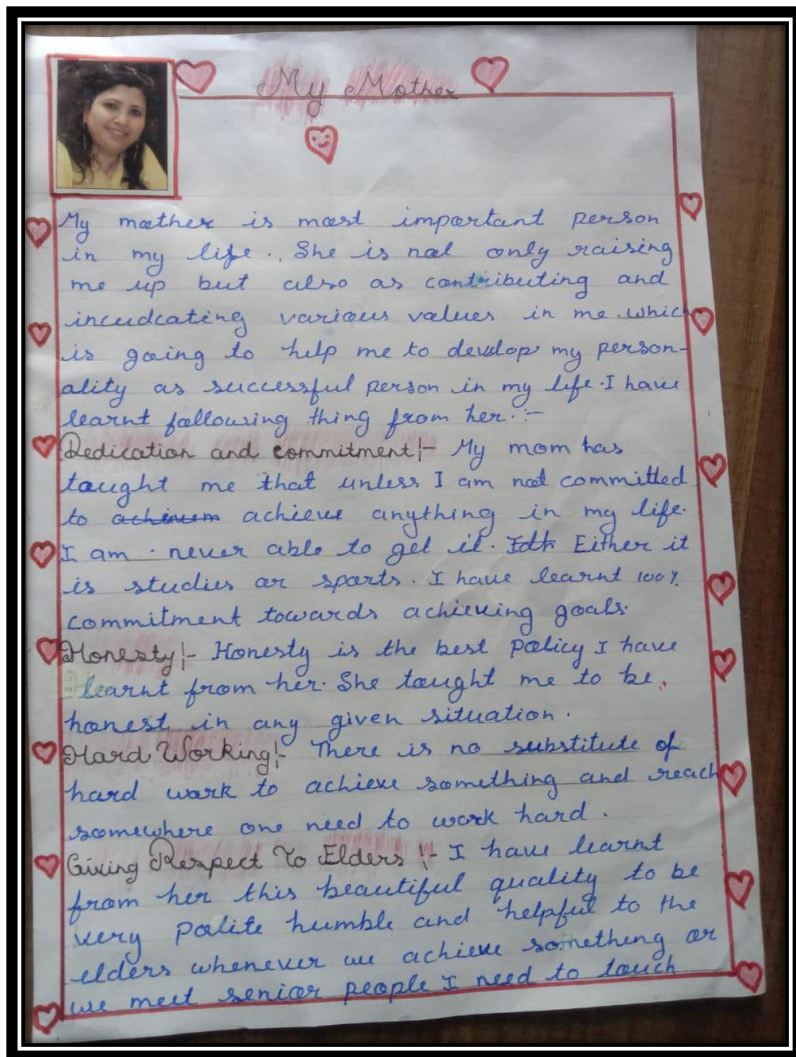 My Mother
My mother is most important person
in my life. She is not only raising
me up but also as contributing and
incudcating various values in me. which
is going to help me to develop my person-
ality as successful person in my life. I have
learnt following thing from her. :-
Dedication and commitment:- My mom has
taught me that unless I am not committed
to achieve anything in my life.
I am . never able to get it. Either it
is studies or sports. I have learnt 100%
commitment towards achieving goals.
Honesty:- Honesty is the best Policy I have
learnt from her. She taught me to be
honest in any given situation.
Hard Working:- There is no substitute of
hard work to achieve something and reach
somewhere one need to work hard.
Giving Respect To Elders :- I have learnt
from her this beautiful quality to be
very Polite humble and helpful to the
elders whenever we achieve something or
we meet senior people I need to touch